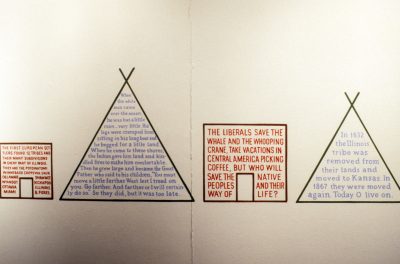 THE FIRST EUROPEAN SET
TLERS FOUND 12 TRIBES AND
THEIR MANY SUBDIVISIONS
IN EVERY PART OF ILLINOIS.
THEY ARE THE
WINNEBAGO CHIPPEWA SAUK
DELAWARE SHAWNEE
KICKAPOO
OTTAWA
MIAMI
When
the white
man came
over the water,
he was but a little
man...very little. His
legs were cramped from
sitting in his long boat and
he begged for a little land.
When he came to these shores
the Indian gave him land and kin-
dled fires to make him comfortable.
Then he grew large and became the Great
Father who said to his children, You must
move a little farther West lest I tread on
you. Go farther. And farther or I will certain
ly do so. So they did, but it was too late.
THE LIBERALS SAVE THE
WHALE AND THE WHOOPING
CRANE, TAKE VACATIONS IN
CENTRAL AMERICA PICKING
COFFEE, BUT WHO WILL
SAVE THE NATIVE
PEOPLES AND THEIR
WAY OF LIFE?
In 1832
the Illinois
tribe was
removed from
their lands and
moved to Kansas. In
1867 they were moved
again. Today 0 live on.